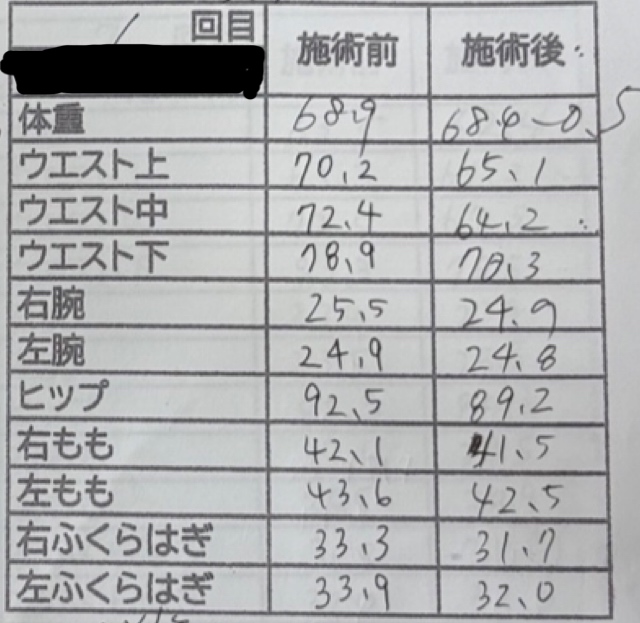 回目
施術前 施術後
体重 68.9 68.4 -0.5
ウエスト上 70.2 65.1
ウエスト中 72.4 64.2
ウエスト下 78.9 70.3
右腕 25.5 24.9
左腕 24.9 24.8
ヒップ 92.5 89.2
右もも 42.1 41.5
左もも 43.6 42.5
右ふくらはぎ 33.3 31.7
左ふくらはぎ 33.9 32.0